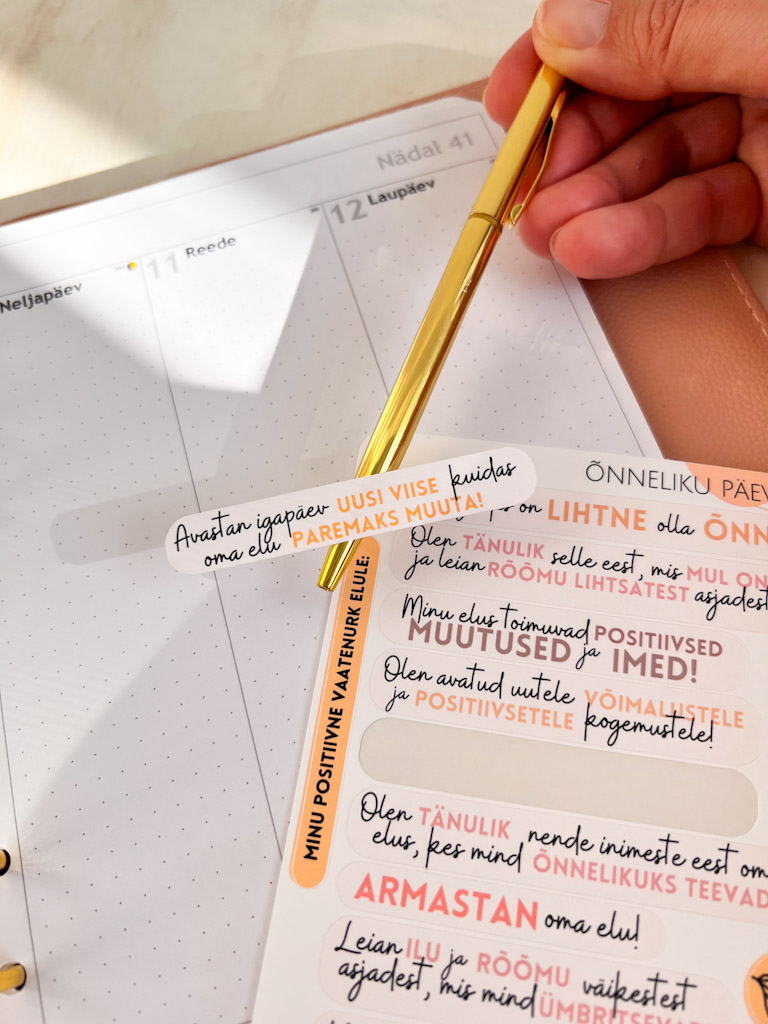 Nädal 41
Neljapäev
11 Reede
12 Laupäev
Avastan igapäev UUSI VIISE kuidas
oma elu PAREMAKS MUUTA!
ÕNNELIKU
on LIHTNE olla
Olen TÄNULIK selle eest, mis MUL ON
ja leian RÕÕMU LIHTSATEST asjadest
Minu elus toimuvad POSITIIVSED
MUUTUSED ja IMED!
Olen avatud uutele VÕIMALUSTELE
ja POSITIIVSETELE kogemustele!
MINU POSITIIVNE VAATENURK ELULE:
Olen TÄNULIK nende inimeste eest
elus, kes mind ÕNNELIKUKS TEEVAD
ARMASTAN oma elu!
Leian ILU ja RÕÕMU väikestest
asjadest, mis mind